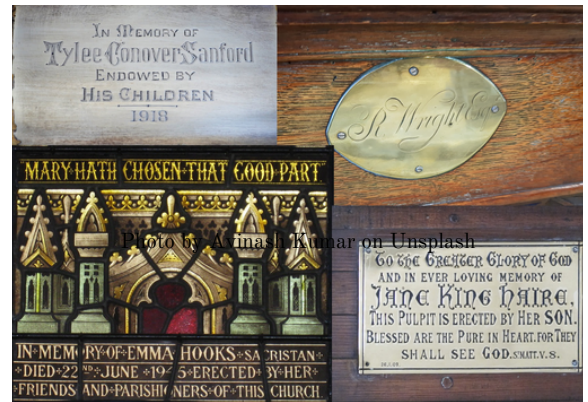 In Memory of
Tylee Conover Sanford
Endowed by
His Children
1918
R. Wright Esq
MARY HATH CHOSEN THAT GOOD PART"
Photo by Avinash Kumar on Unsplash
IN MEMORY OF EMMA HOOKS SACRISTAN
DIED 22ND JUNE 1945 ERECTED BY HER
FRIENDS AND PARISHIONERS OF THIS CHURCH
To the Greater Glory of God
and in ever loving memory of
Jane King Haire,
This Pulpit is erected by Her Son.
Blessed are the Pure in Heart, for They
shall see God. S. Matt. V. 8.